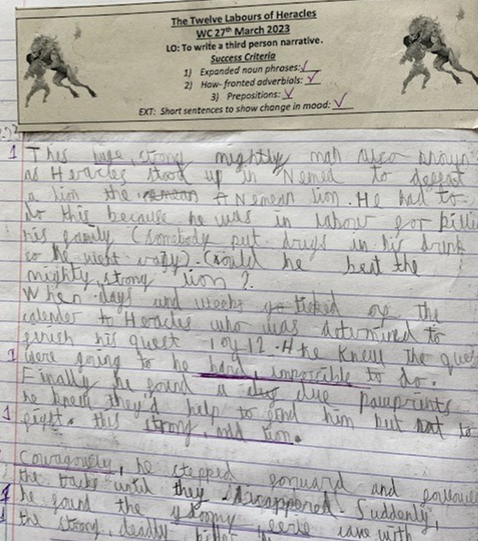 The Twelve Labours of Heracles
WC 27th March 2023
LO: To write a third person narrative.
Success Criteria
1) Expanded noun phrases:
2) How-fronted adverbials:
3) Prepositions:
EXT: Short sentences to show change in mood:
1 This huge, strong mightly man also known
as Heracles stood up in Nemea to defeat
a lion the A Nemean lion. He had to
do this because he was in labour for
his family (somebody put drugs in his drink
so he went ). Could he beat the
mighty, strong lion?
When days and weeks ticked of the
calender to Heracles who was determined to
finish his quest 1 of 12. He knew the
were going to be hard, impossible to do.
Finally he found a pawprints
he knew they'd help to find him but not to
1 fight. this strong, lion.
Couragously, he stepped forward and
the tracks until they disappeared. Suddenly,
he found the gloomy, eerie cave with
the strong, deadly,